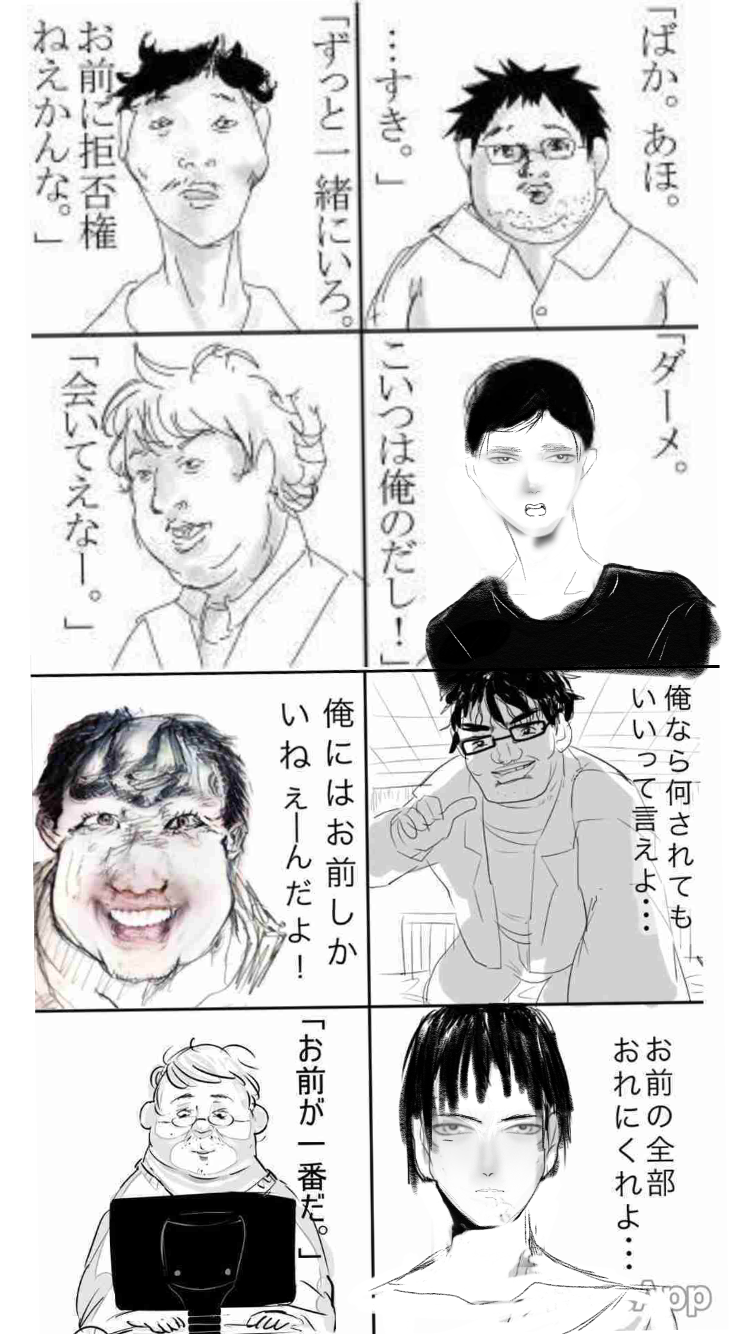 「ばか。あほ。
…すき。」
「ずっと一緒にいろ。
お前に拒否権
ねえかんな。」
「ダーメ。
こいつは俺のだし！」
「会いてえなー。」
俺なら何されても
いいって言えよ…
俺にはお前しか
いねぇーんだよ！
お前の全部
おれにくれよ…
「お前が一番だ。」
App